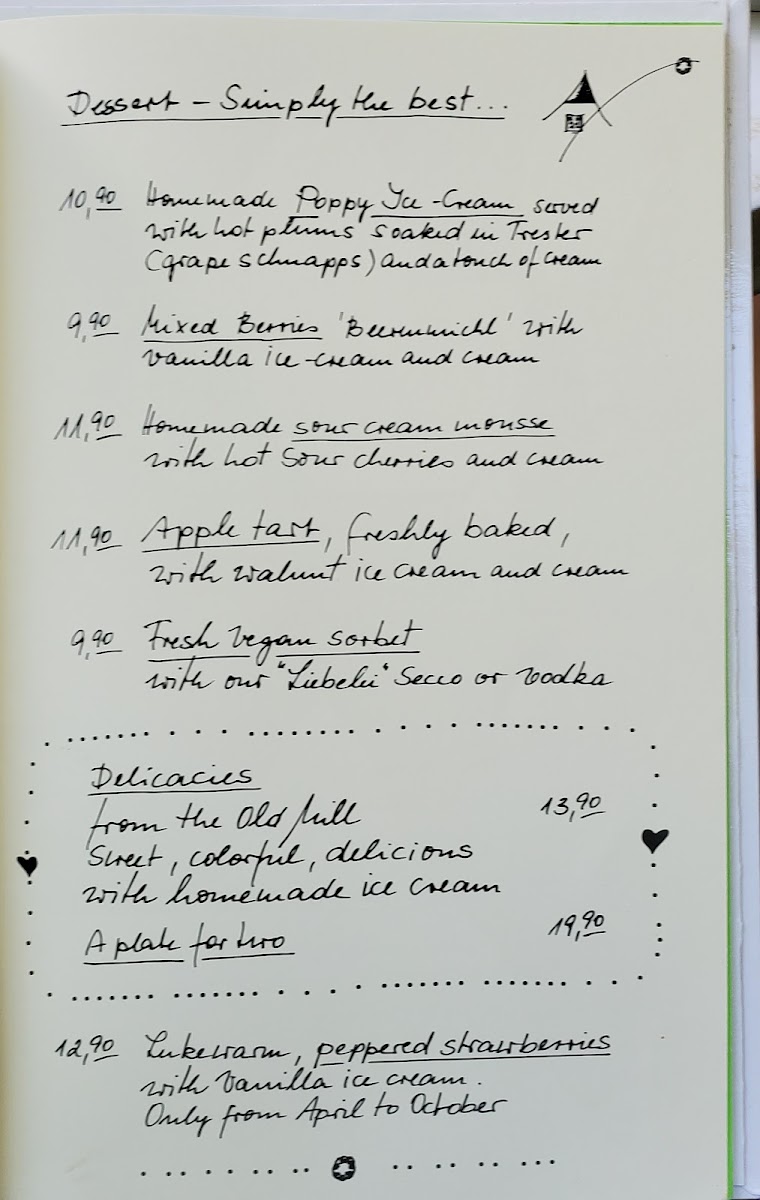 Dessert – Simply the best...
10,90 Homemade Poppy Ice-Cream served
with hot plums soaked in Trester
(grape schnapps) and a touch of cream
9,90 Mixed Berries 'Beerenmichl' with
vanilla ice-cream and cream
11,90 Homemade sour cream mousse
with hot sour cherries and cream
11,90 Apple tart, freshly baked,
with walnut ice cream and cream
9,90 Fresh vegan sorbet
with our "Liebelei" Secco or vodka
Delicacies
from the Old Mill 13,90
Sweet, colorful, delicious
with homemade ice cream
A plate for two 19,90
12,90 Lukewarm, peppered strawberries
with vanilla ice cream.
Only from April to October